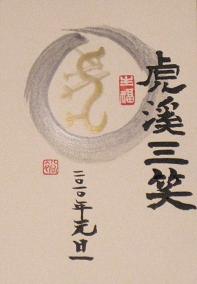 虎溪三笑
二〇一〇年元旦